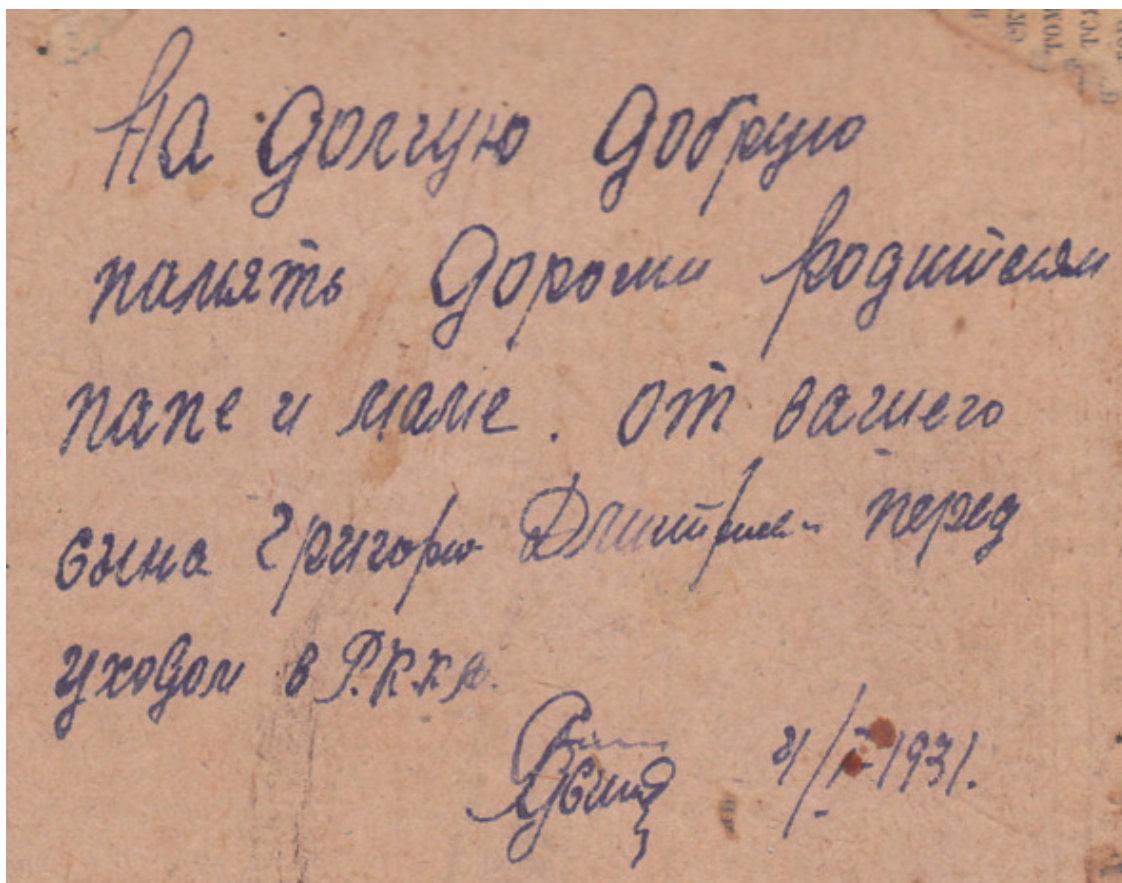 На долгую добрую
память дороги родителям
папе и маме. от вашего
сына Григория перед
уходом в Р.К.К.А.
1931.